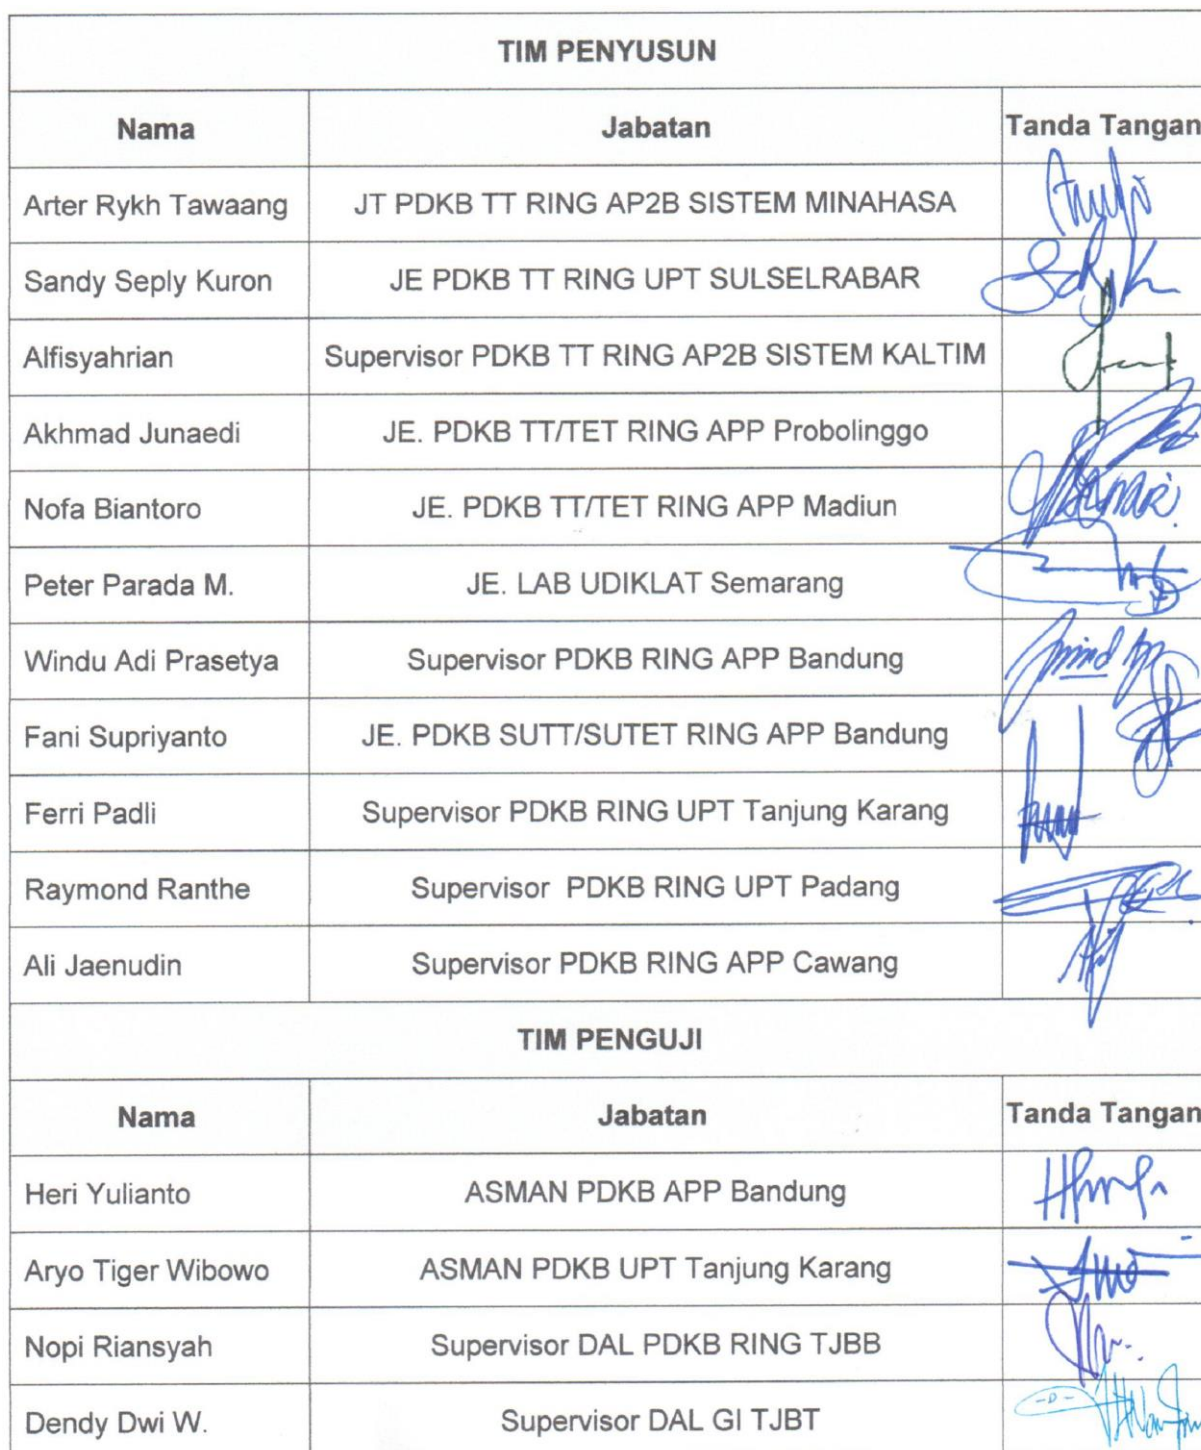 TIM PENYUSUN
Nama Jabatan Tanda Tangan
Arter Rykh Tawaang JT PDKB TT RING AP2B SISTEM MINAHASA
Sandy Seply Kuron JE PDKB TT RING UPT SULSELRABAR
Alfisyahrian Supervisor PDKB TT RING AP2B SISTEM KALTIM
Akhmad Junaedi JE. PDKB TT/TET RING APP Probolinggo
Nofa Biantoro JE. PDKB TT/TET RING APP Madiun
Peter Parada M. JE. LAB UDIKLAT Semarang
Windu Adi Prasetya Supervisor PDKB RING APP Bandung
Fani Supriyanto JE. PDKB SUTT/SUTET RING APP Bandung
Ferri Padli Supervisor PDKB RING UPT Tanjung Karang
Raymond Ranthe Supervisor PDKB RING UPT Padang
Ali Jaenudin Supervisor PDKB RING APP Cawang
TIM PENGUJI
Nama Jabatan Tanda Tangan
Heri Yulianto ASMAN PDKB APP Bandung
Aryo Tiger Wibowo ASMAN PDKB UPT Tanjung Karang
Nopi Riansyah Supervisor DAL PDKB RING TJBB
Dendy Dwi W. Supervisor DAL GI TJBT